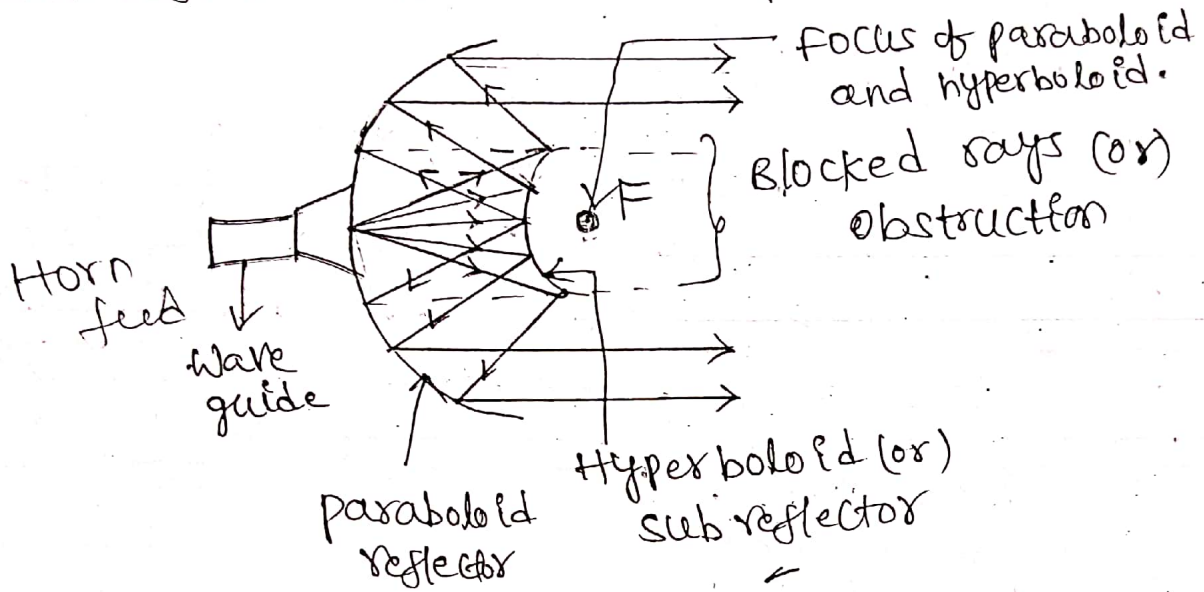 Focus of paraboloid
and hyperboloid.
F
Blocked rays (or)
Obstruction
Horn
feed
Wave
guide
paraboloid
reflector
Hyperboloid (or)
sub reflector